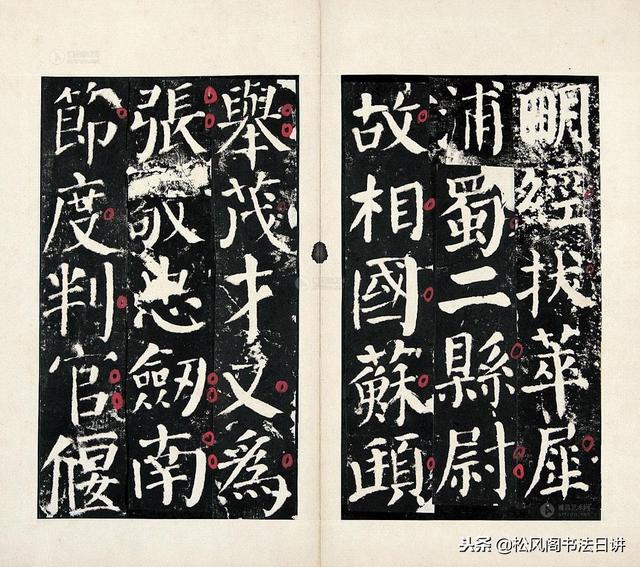 明經拔萃犀
浦蜀二縣尉
故相國蘇頲
舉茂才又爲
張敬忠劒南
節度判官偃
头条 @松风阁书法日讲